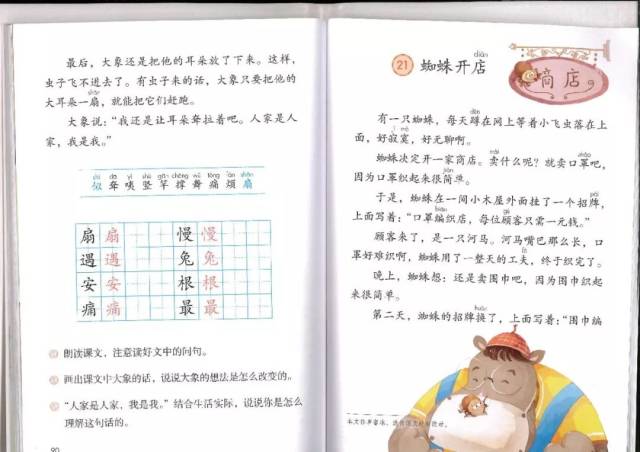 最后，大象还是把他的耳朵放了下来。这样，
虫子飞不进去了。有虫子来的话，大象只要把他的
大耳朵一扇，就能把它们赶跑。
大象说：“我还是让耳朵耷拉着吧。人家是人
家，我是我。”
sì dā yí shù gān chēng wǔ tòng fán shàn
似 耷 咦 竖 竿 撑 舞 痛 烦 扇
扇 扇 慢 慢
遇 遇 兔 兔
安 安 根 根
痛 痛 最 最
朗读课文，注意读好文中的问句。
画出课文中大象的话，说说大象的想法是怎么改变的。
“人家是人家，我是我。”结合生活实际，说说你是怎么
理解这句话的。
90
21 蜘蛛开店
diàn
商店
有一只蜘蛛，每天蹲在网上等着小飞虫落在上
面，好寂寞，好无聊啊。
蜘蛛决定开一家商店。卖什么呢？就卖口罩吧，
因为口罩织起来很简单。
于是，蜘蛛在一间小木屋外面挂了一个招牌，
上面写着：“口罩编织店，每位顾客只需一元钱。”
顾客来了，是一只河马。河马嘴巴那么长，口
罩好难织啊，蜘蛛用了一整天的工夫，终于织完了。
晚上，蜘蛛想：还是卖围巾吧，因为围巾织起
来很简单。
第二天，蜘蛛的招牌换了，上面写着：“围巾编
本文作者鲁冰，